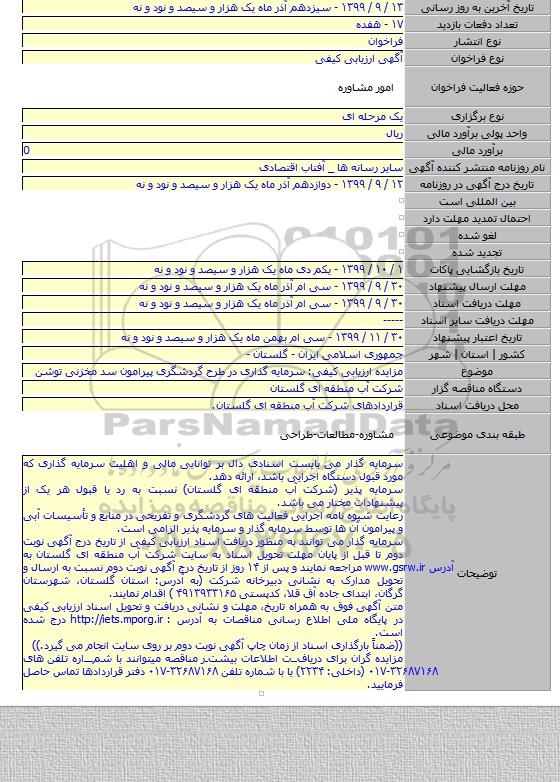 تاریخ آخرین به روز رسانی ۱۳ / ۹ / ۱۳۹۹ - سیزدهم آذر ماه یک هزار و سیصد و نود و نه
تعداد دفعات بازدید ۱۷ - هفده
نوع انتشار فراخوان
نوع فراخوان آگهی ارزیابی کیفی
حوزه فعالیت فراخوان امور مشاوره
نوع برگزاری یک مرحله ای
واحد پولی برآورد مالی ریال
برآورد مالی 0
نام روزنامه منتشر کننده آگهی سایر رسانه ها _ آفتاب اقتصادی
تاریخ درج آگهی در روزنامه ۱۲ / ۹ / ۱۳۹۹ - دوازدهم آذر ماه یک هزار و سیصد و نود و نه
بین المللی است
احتمال تمدید مهلت دارد
لغو شده
تجدید شده
تاریخ بازگشایی پاکات ۱ / ۱۰ / ۱۳۹۹ - یکم دی ماه یک هزار و سیصد و نود و نه
مهلت ارسال پیشنهاد ۳۰ / ۹ / ۱۳۹۹ - سی ام آذر ماه یک هزار و سیصد و نود و نه
مهلت دریافت اسناد ۳۰ / ۹ / ۱۳۹۹ - سی ام آذر ماه یک هزار و سیصد و نود و نه
مهلت دریافت سایر اسناد -----
تاریخ اعتبار پیشنهاد ۳۰ / ۱۱ / ۱۳۹۹ - سی ام بهمن ماه یک هزار و سیصد و نود و نه
کشور | استان | شهر جمهوری اسلامی ایران - گلستان -
موضوع مزایده ارزیابی کیفی: سرمایه گذاری در طرح گردشگری پیرامون سد مخزنی توشن
دستگاه مناقصه گزار شرکت آب منطقه ای گلستان
محل دریافت اسناد قراردادهای شرکت آب منطقه ای گلستان.
ParsNamadData
طبقه بندی موضوعی مشاوره-مطالعات-طراحی
سرمایه گذار می بایست اسنادی دال بر توانایی مالی و اهلیت سرمایه گذاری که
مورد قبول دستگاه اجرایی باشد، ارائه دهد.
سرمایه پذیر (شرکت آب منطقه ای گلستان) نسبت به رد یا قبول هر یک از
پیشنهادات مختار می باشد.
رعایت شیوه نامه اجرایی فعالیت های گردشگری و تفریحی در منابع و تأسیسات آبی
و پیرامون آن ها توسط سرمایه گذار و سرمایه پذیر الزامی است.
سرمایه گذار می توانند به منظور دریافت اسناد ارزیابی کیفی از تاریخ درج آگهی نوبت
دوم تا قبل از پایان مهلت تحویل اسناد به سایت شرکت آب منطقه ای گلستان به
آدرس www.gsrw.ir مراجعه نمایند و پس از ۱۴ روز از تاریخ درج آگهی نوبت دوم نسبت به ارسال و
توضیحات
تحویل مدارک به نشانی دبیرخانه شرکت (به آدرس: استان گلستان، شهرستان
گرگان، ابتدای جاده آق قلا، کدپستی ۴۹۱۳۹۳۳۱۶۵ ) اقدام نمایند.
متن آگهی فوق به همراه تاریخ، مهلت و نشانی دریافت و تحویل اسناد ارزیابی کیفی
در پایگاه ملی اطلاع رسانی مناقصات به آدرس : http://iets.mporg.ir درج شده
است.
((ضمناً بارگذاری اسناد از زمان چاپ آگهی نوبت دوم بر روی سایت انجام می گیرد.))
مزایده گران برای دریافـت اطلاعات بیشتـر مناقصه میتوانند با شمـاره تلفن های
۰۱۷-۳۲۶۸۷۱۶۸ (داخلی: ۲۲۳۴) یا با شماره تلفن ۳۲۶۸۷۱۶۸-۰۱۷ دفتر قراردادها تماس حاصل
فرمایید.